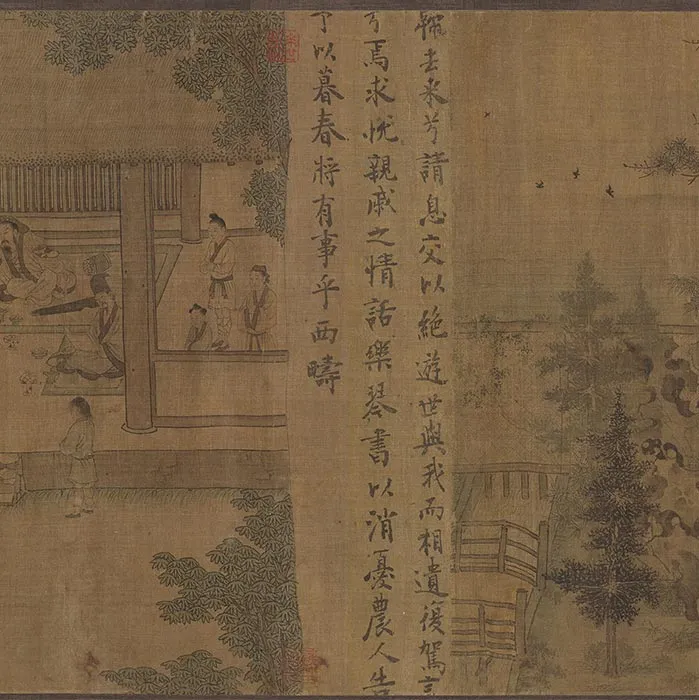 歸去来兮請息交以絶遊世與我而相遺復駕言
兮焉求悅親戚之情話樂琴書以消憂農人告
予以暮春將有事乎西疇